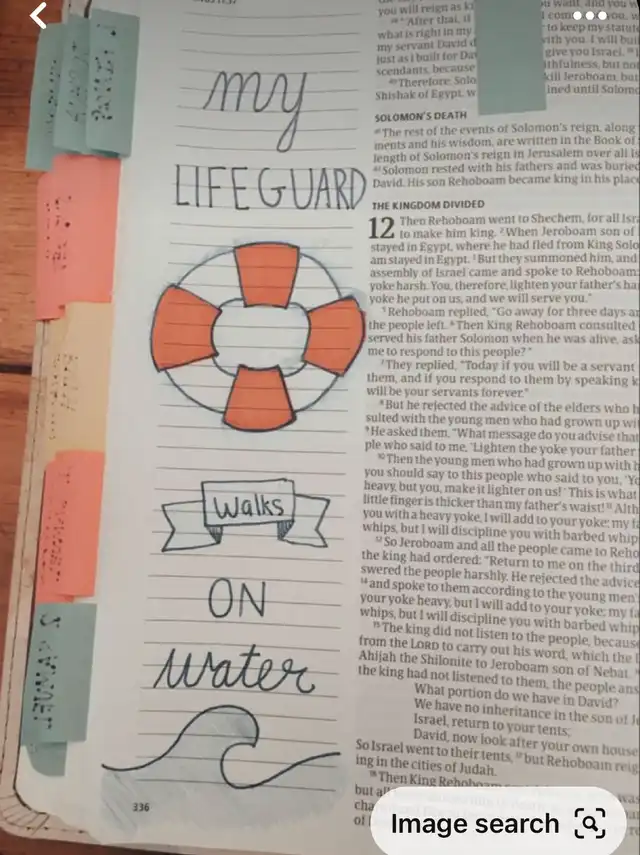 my
LIFEGUARD
Walks
ON
water
336
you will reign as
"After that, if
what is right in my
my servant David
just as I built for
scendants, because
Therefore, Solo
Shishak of Egypt,
to keep my statut
with you. I will
give you Israel.
but
kill Jeroboam, but
ined until Solomo
SOLOMON'S DEATH
41 The rest of the events of Solomon's reign, along
ments and his wisdom, are written in the Book of
length of Solomon's reign in Jerusalem over all
Solomon rested with his fathers and was buried
David. His son Rehoboam became king in his place
THE KINGDOM DIVIDED
12 Then Rehoboam went to Shechem, for all Isra
to make him king. 2 When Jeroboam son of
stayed in Egypt, where he had fled from King Solo
am stayed in Egypt. 3 But they summoned him, and
assembly of Israel came and spoke to Rehoboam:
yoke harsh. You, therefore, lighten your father's ha
yoke he put on us, and we will serve you."
5 Rehoboam replied, "Go away for three days a
the people left. 6 Then King Rehoboam consulted
served his father Solomon when he was alive, ask
me to respond to this people?"
7 They replied, "Today if you will be a servant
them, and if you respond to them by speaking k
will be your servants forever."
8 But he rejected the advice of the elders who h
sulted with the young men who had grown up wi
9 He asked them, "What message do you advise that
ple who said to me, 'Lighten the yoke your father
10 Then the young men who had grown up with h
you should say to this people who said to you, 'Yo
heavy, but you, make it lighter on us!' This is what
little finger is thicker than my father's waist! 11 Alth
you with a heavy yoke, I will add to your yoke; my fa
whips, but I will discipline you with barbed whip
12 So Jeroboam and all the people came to Reho
the king had ordered: "Return to me on the third
swered the people harshly. He rejected the advice
14 and spoke to them according to the young men'
your yoke heavy, but I will add to your yoke; my fa
whips, but I will discipline you with barbed whip
15 The king did not listen to the people, because
from the LORD to carry out his word, which the
Ahijah the Shilonite to Jeroboam son of Nebat. 16
the king had not listened to them, the people ans
What portion do we have in David?
We have no inheritance in the son of J
Israel, return to your tents;
David, now look after your own house
So Israel went to their tents, 17 but Rehoboam reig
ing in the cities of Judah.
18 Then King Rehoboam
but all
Image search